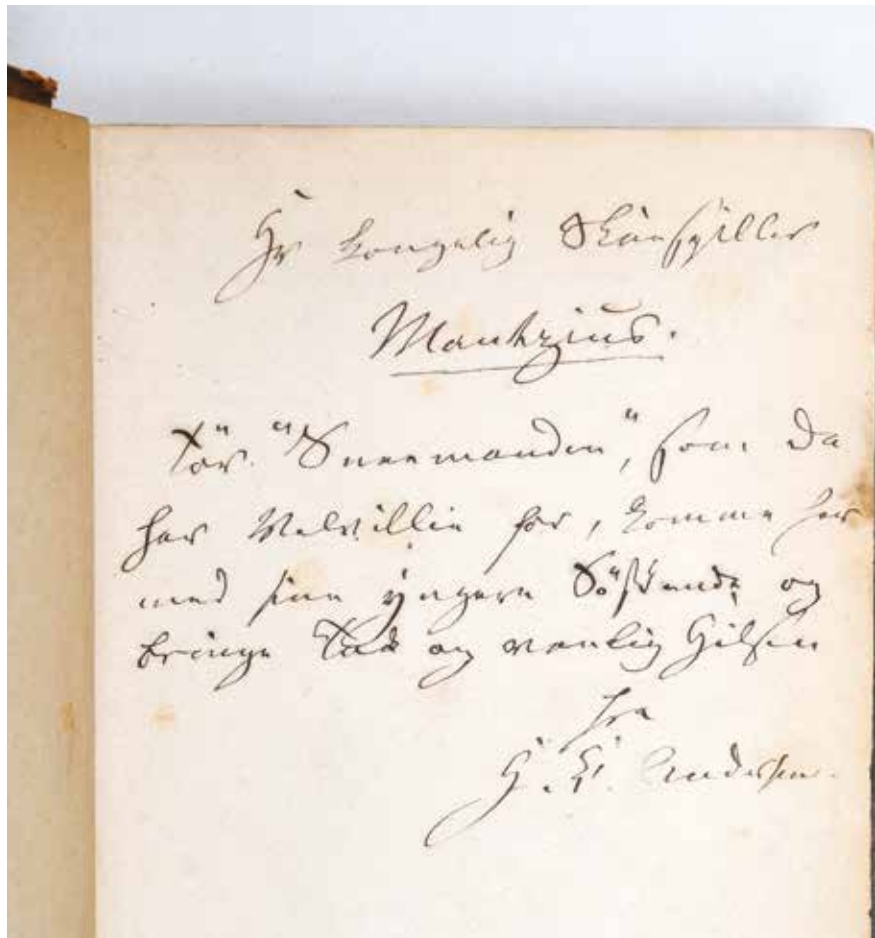 Hr kongelig Skuespiller
Mantzius.
Tör "Sneemanden", som De
har Velvillie for, komme her
med sine yngere Södskende og
bringe Tak og venlig Hilsen
fra
H. C. Andersen.